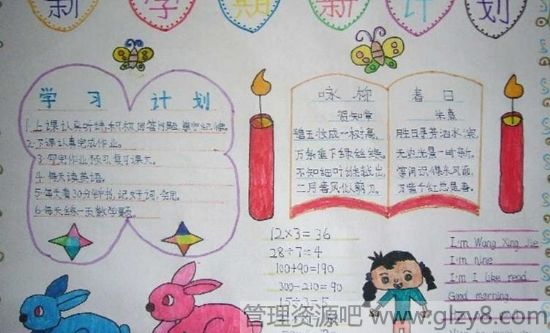 新学期新计划
学习计划
1.上课认真听讲,积极回答问题,遵守纪律。
2.下课认真完成作业。
3.写完作业预习,复习课文。
4.每天读英语。
5.每天看30分钟书,记好词、好句。
6.每天练一页数学题。
咏柳
贺知章
碧玉妆成一树高,
万条垂下绿丝绦。
不知细叶谁裁出,
二月春风似剪刀。
春日
朱熹
胜日寻芳泗水滨,
无边光景一时新。
等闲识得东风面,
万紫千红总是春。
12×3=36
28÷7=4
100+90=190
300-210=90
15÷3=5
I'm Wang Xing Jie
I'm nine
I'm I like read
Good morning.
管理资源吧 www.glzy8.com